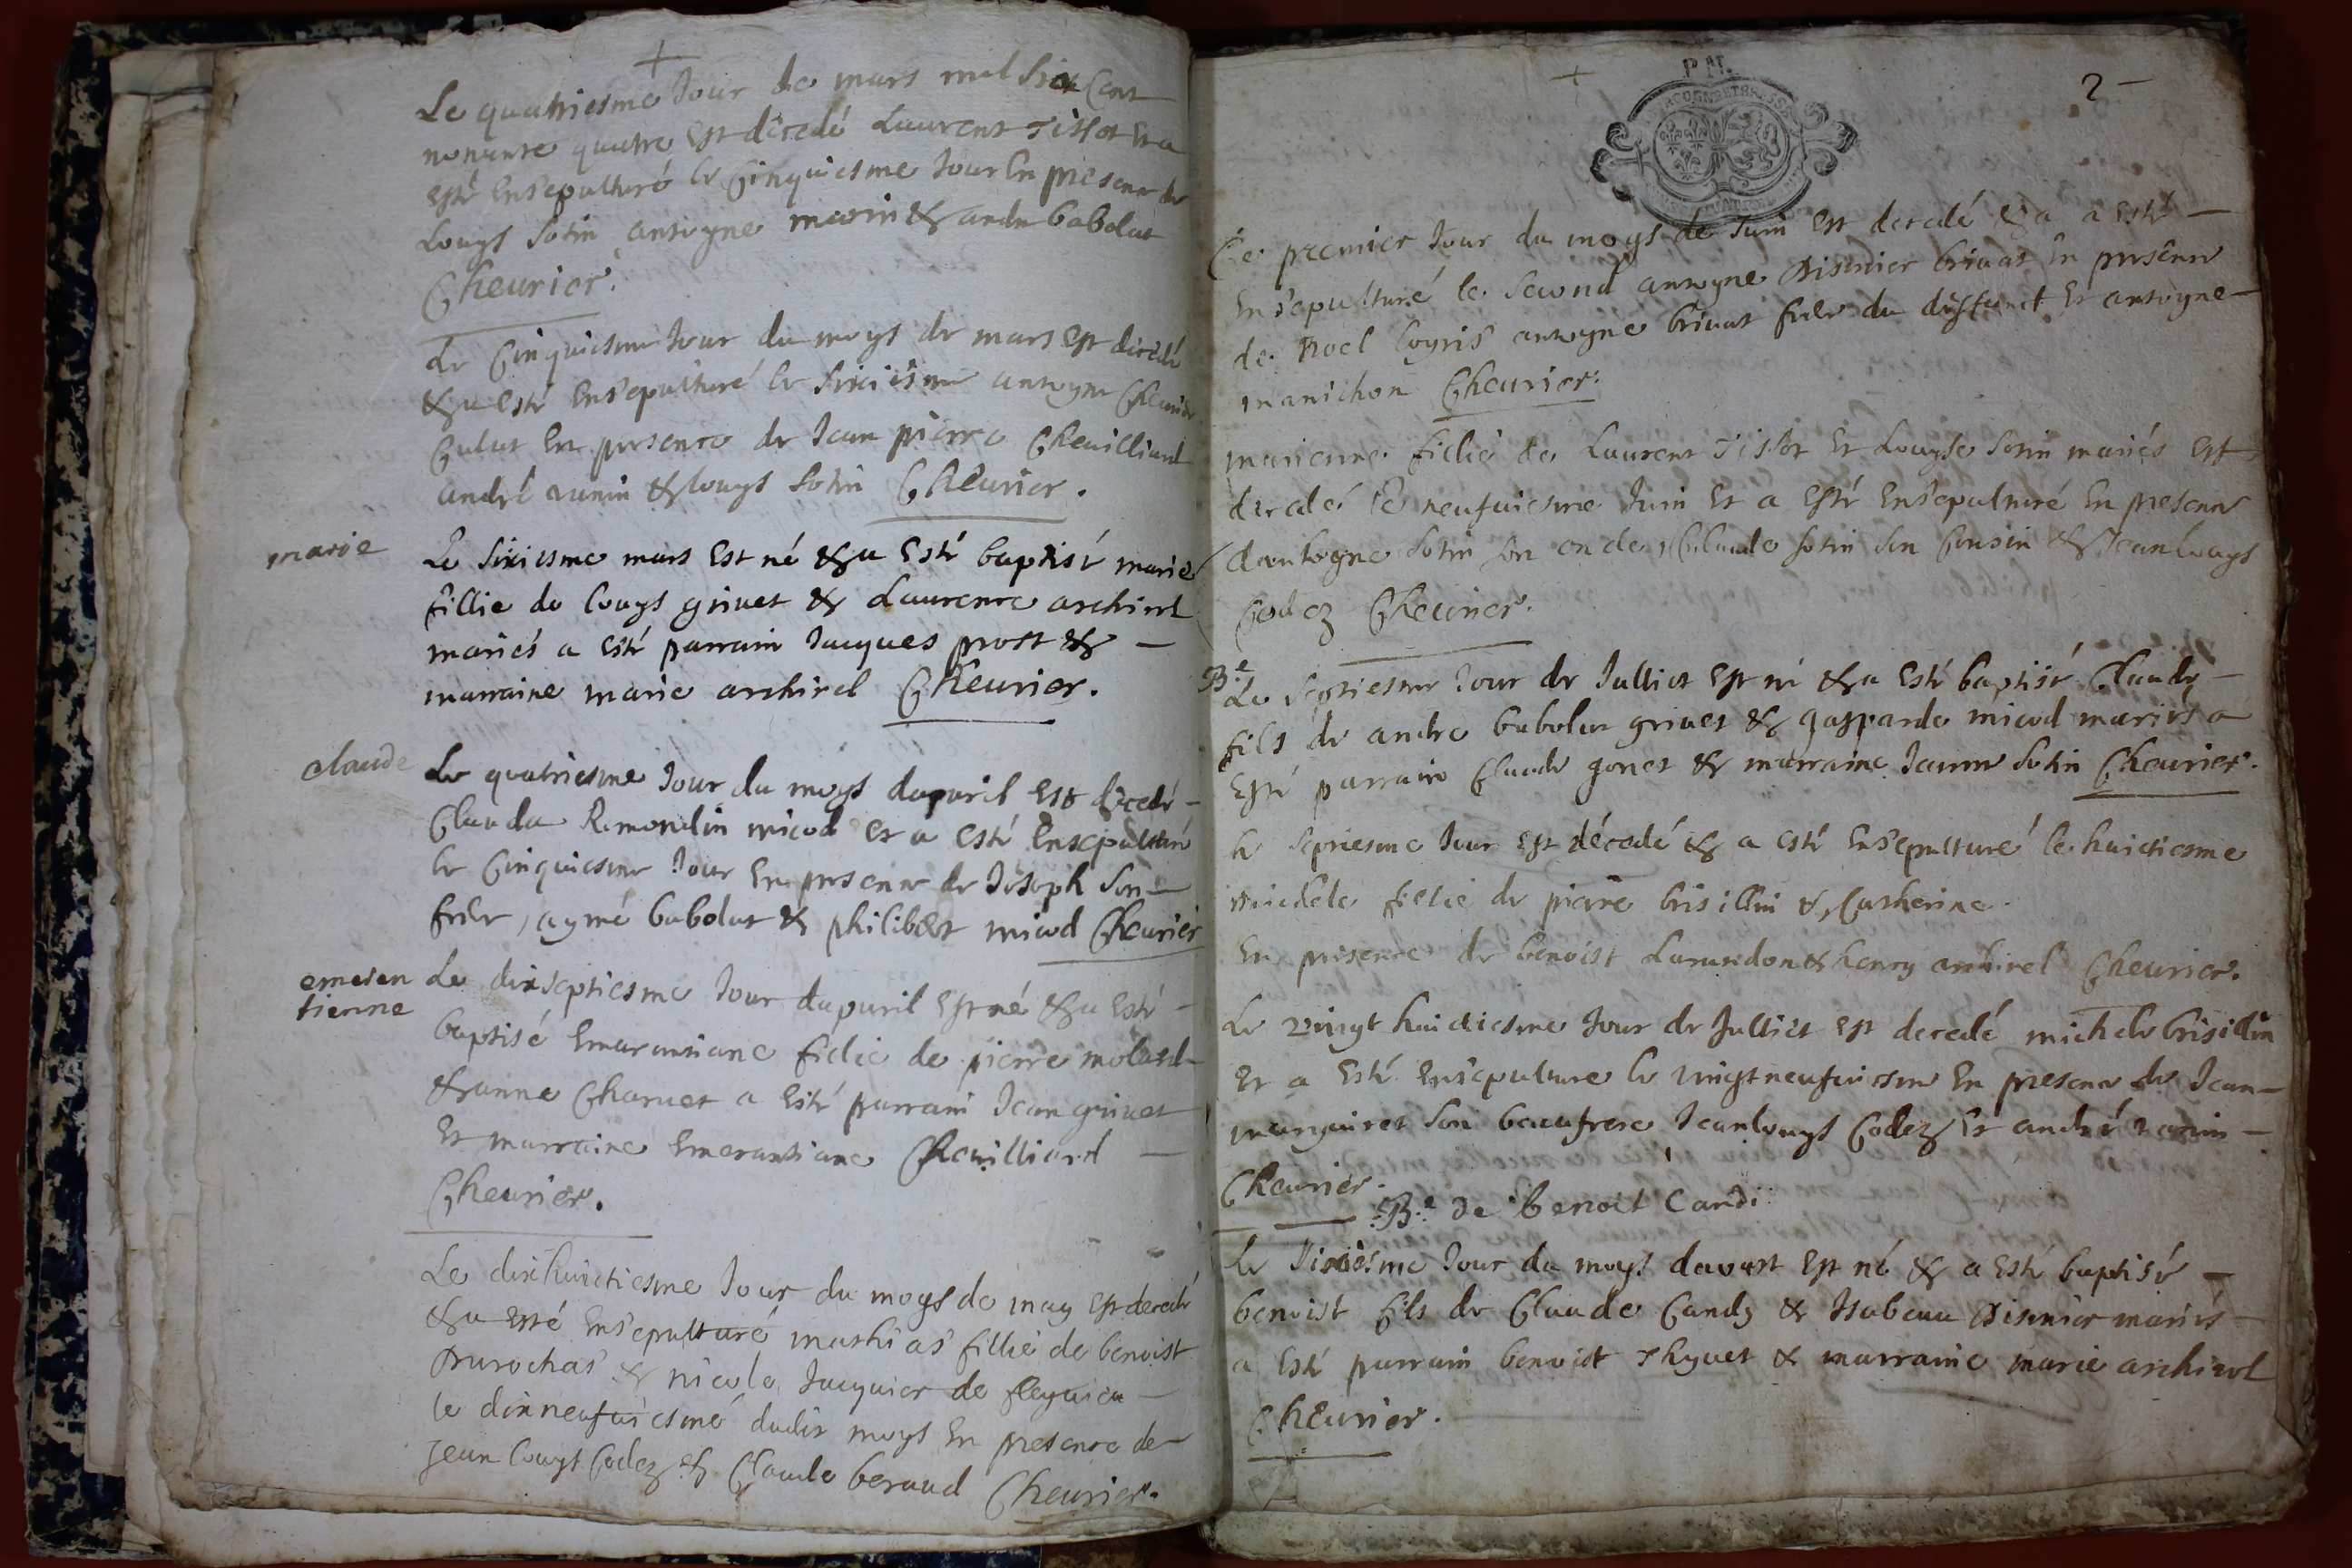 Le quatriesme Jour de mars mil Six Cent
nonante quatre Est décedé Laurent Tissot Et a
esté Ensepulturé le Cinquiesme Jour En presence de
Louys Sotin antoyne marin & andre babolat
Cheurier.
Le Cinquiesme Jour du moys de mars Est décédé
& a Esté Ensepulturé le Sixiesme antoyne Cheurier
En presence de Jean pierre Cheuilliard
andré & louys Sotin Cheurier.
marie
Le Sixiesme mars Est né & a Esté baptisé marie
fillie de louys griuet & Laurence archirel
mariés a Esté parrain Jacques prost &
marraine marie archirel Cheurier.
claude
Le quatriesme Jour du moys dapuril Est décedé
Clauda Remondin micod Et a Esté Ensepulturé
le Cinquiesme Jour En presence de Joseph Son
frere, aymé babolat & philibert micod Cheurier
emeren
tienne
Le dixseptiesme Jour dapuril Est né & a Esté
baptisé Emerantiane fillie de pierre molard
& anne Charuet a Esté parrain Jean griuet
Et marraine Emerantiane Cheuilliard
Cheurier.
Le dixhuictiesme Jour du moys de may Est decedé
& a Esté Ensepulturé mathias fillie de benoist
Durochas & nicole Jacquier de fleyrieu
le dixneufuiesme dudit moys En presence de
Jean louys Codez & Claude beraud Cheurier.
P M.
2
Le premier Jour du moys de Juin Est decedé & a a Esté
Ensepulturé le Second antoyne Disinier briuat En presence
de Noel antoyne briuat frere du deffunct Et antoyne
manichon Cheurier.
marienne fillie de Laurent Tissot Et Louyse Sotin mariés Est
decedé le neufuiesme Juin Et a Esté Ensepulturé En presence
dantoyne Sotin son oncle, Claude Sotin Son Cousin & Jean louys
Codez Cheurier.
B.e
Le Septiesme Jour de Julliet Est né & a Esté baptisé Claude
fils de andre babolat griuet & gasparde micod mariés a
Esté parrain Claude gonet & marraine Jeanne Sotin Cheurier.
le Septiesme Jour Est décedé & a esté Ensepulturé le huictiesme
michele fillie de pierre brisillin & Catherine
En presence de benoist & henry archirel Cheurier.
Le vingt huictiesme Jour de Julliet Est decedé michele brisillin
Et a Esté Ensepulture le vingtneufuiesme En presence de Jean
Son beaufrere Jeanlouys Codez Et andré
Cheurier.
B.e De Benoit Candi
Le Sixiesme Jour du moys davost Est né & a Esté baptisé
benoist fils de Claude Candy & Isabeau Disinier mariés
a Esté parrain benoist Thyuet & marraine marie archirel
Cheurier.